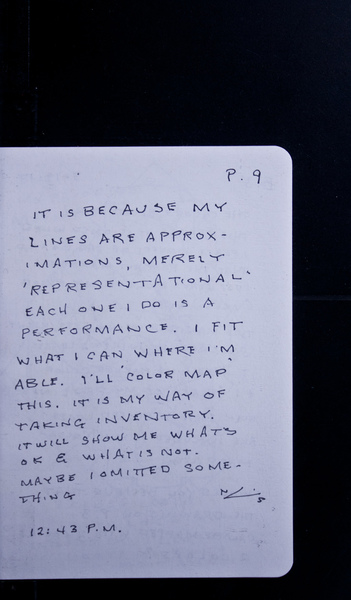 P. 9
IT IS BECAUSE MY
LINES ARE APPROX-
IMATIONS, MERELY
'REPRESENTATIONAL'
EACH ONE I DO IS A
PERFORMANCE. I FIT
WHAT I CAN WHERE I'M
ABLE. I'LL 'COLOR MAP'
THIS. IT IS MY WAY OF
TAKING INVENTORY.
IT WILL SHOW ME WHATS
OK & WHAT IS NOT.
MAYBE I OMITTED SOME-
THING
12:43 P.M.